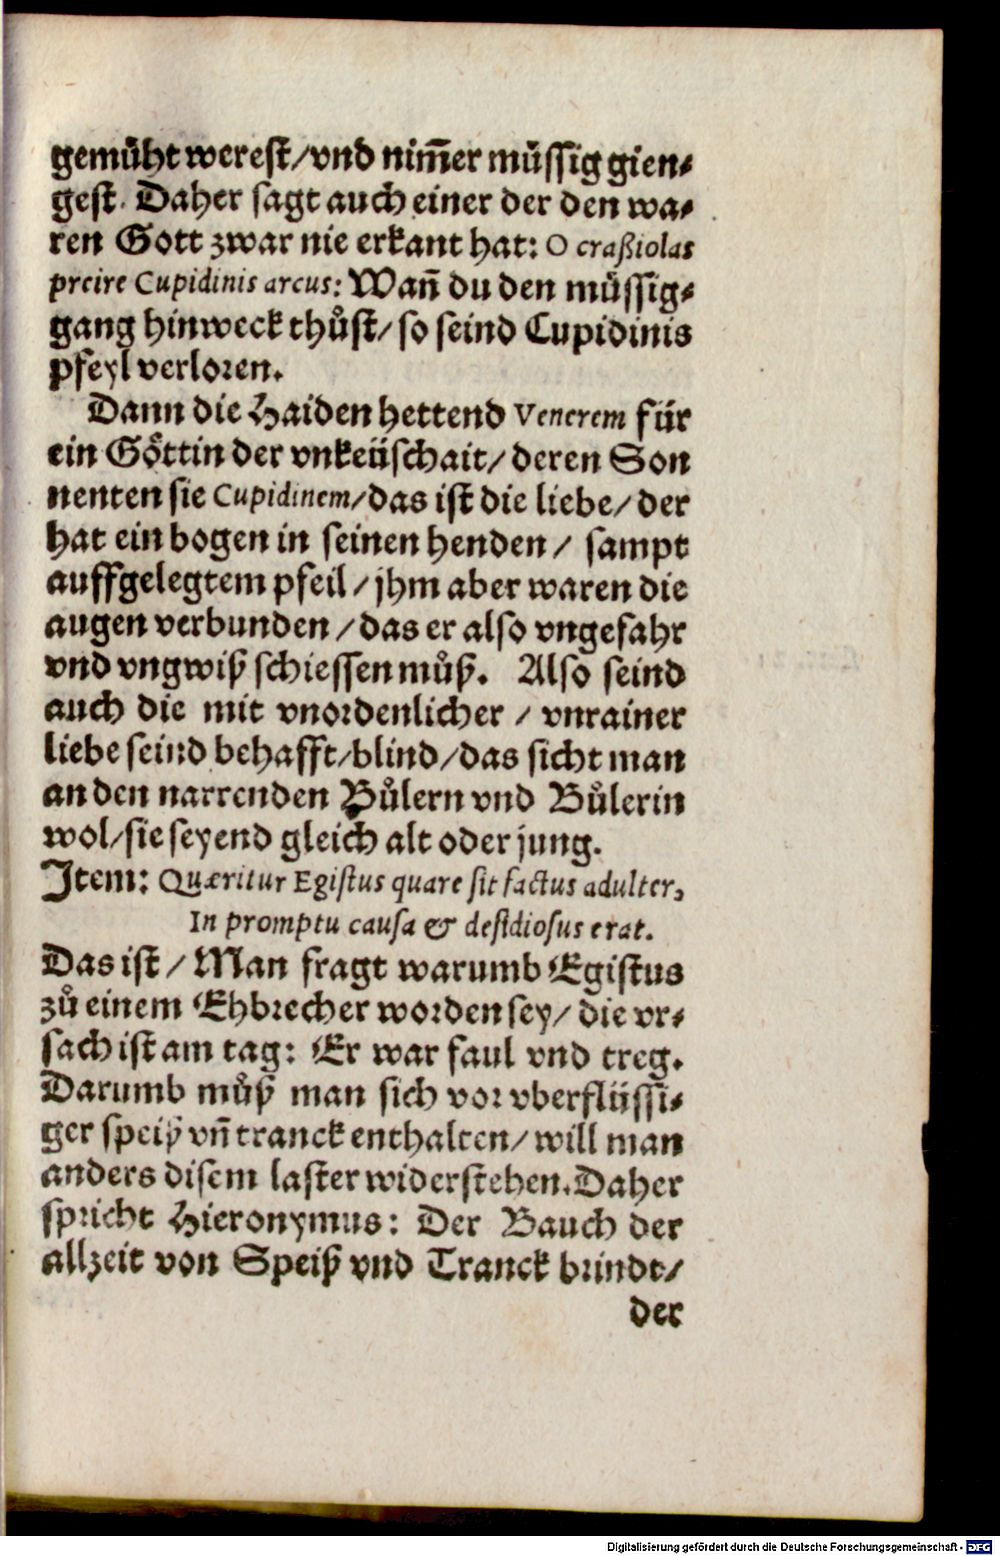 gemůht werest/vnd nim̃er müssig gien⸗
gest. Daher sagt auch einer der den wa⸗
ren Gott zwar nie erkant hat: O craßiolas
preire Cupidinis arcus: Wañ du den müssig⸗
gang hinweck thůst/ so seind Cupidinis
pfeyl verloren.
Dann die Haiden hettend Venerem für
ein Göttin der vnkeüschait/ deren Son
nenten sie Cupidinem/das ist die liebe/ der
hat ein bogen in seinen henden / sampt
auffgelegtem pfeil / jhm aber waren die
augen verbunden / das er also vngefahr
vnd vngwiß schiessen můß. Also seind
auch die mit vnordenlicher / vnrainer
liebe seind behafft/blind/das sicht man
an den narrenden Bůlern vnd Bůlerin
wol/sie seyend gleich alt oder jung.
Item: Quæritur Egistus quare sit factus adulter,
In promptu causa & desidiosus erat.
Das ist / Man fragt warumb Egistus
zů einem Ehbrecher worden sey/ die vr⸗
sach ist am tag: Er war faul vnd treg.
Darumb můß man sich vor vberflüssi⸗
ger speiß vñ tranck enthalten/ will man
anders disem laster widerstehen. Daher
spricht Hieronymus: Der Bauch der
allzeit von Speiß vnd Tranck brindt/
der
Digitalisierung gefördert durch die Deutsche Forschungsgemeinschaft - DFG